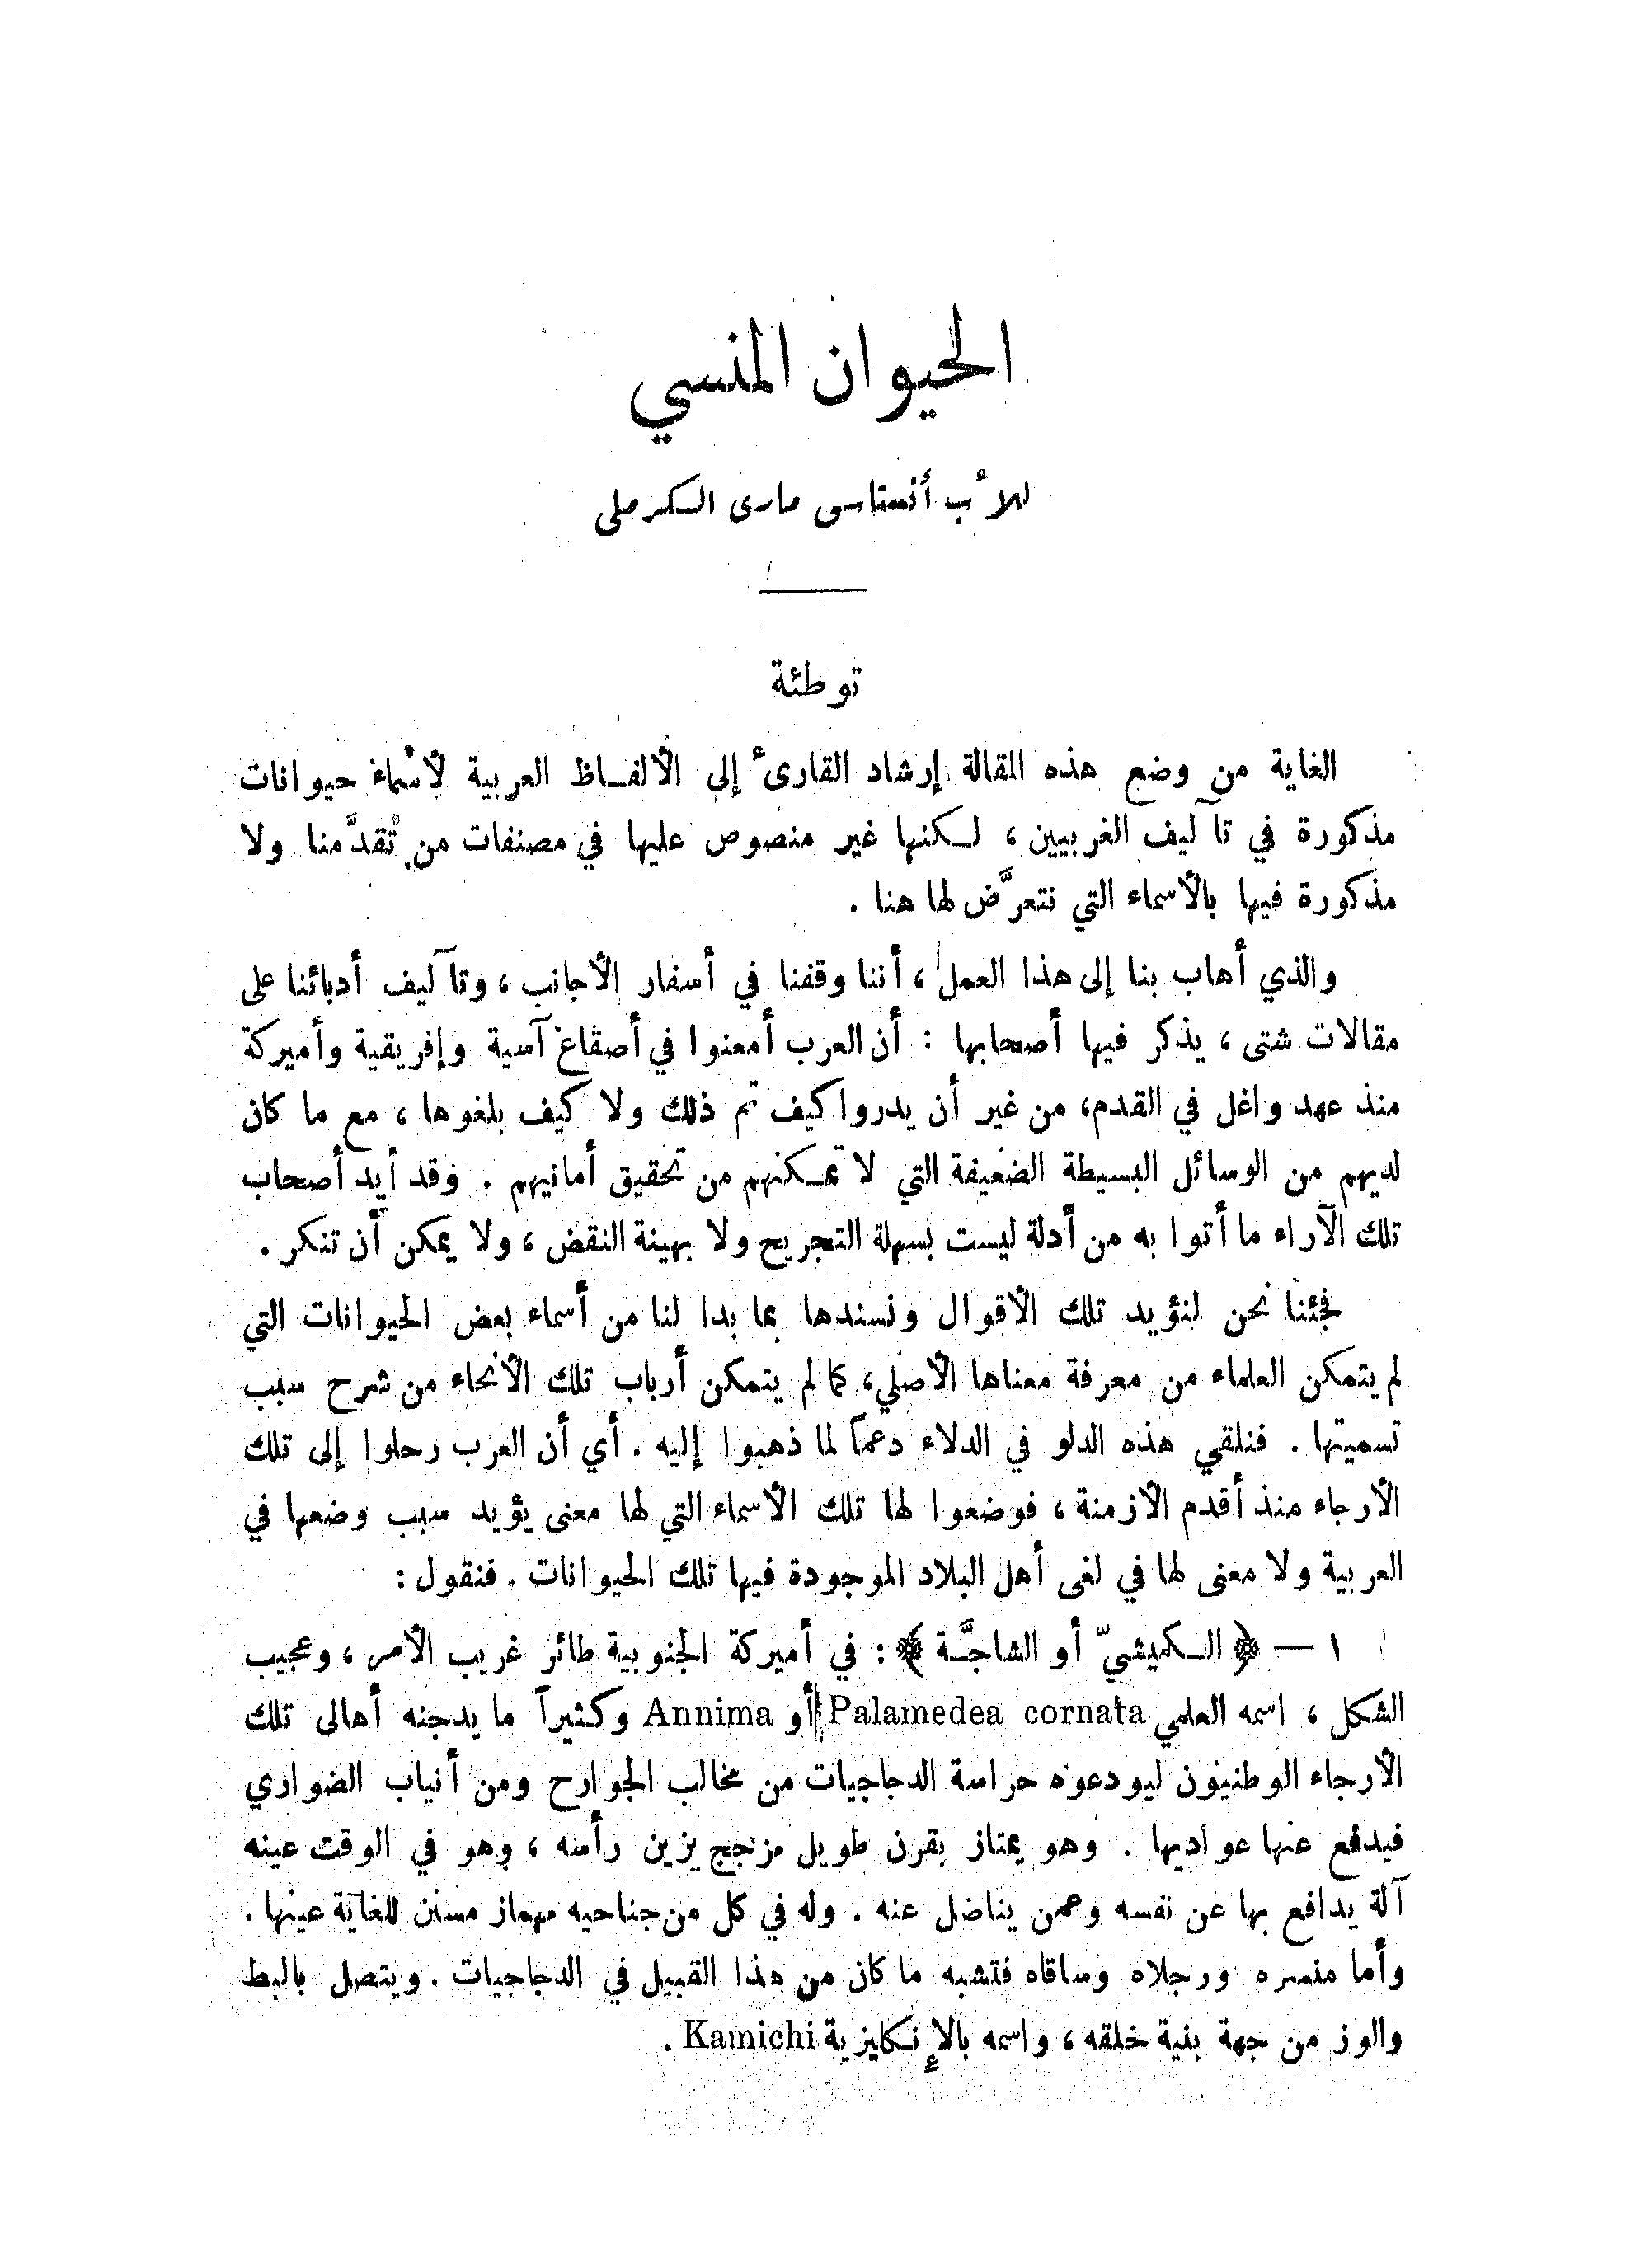 الحيوان المنسي
للأب أنستاس ماري الكرملي
توطئة
الغاية من وضع هذه المقالة إرشاد القارئ إلى الألفاظ العربية لأسماء حيوانات
مذكورة في تآليف الغربيين ، لكنها غير منصوص عليها في مصنفات من تقدَّمنا ولا
مذكورة فيها بالأسماء التي نتعرَّض لها هنا .
والذي أهاب بنا إلى هذا العمل ، أننا وقفنا في أسفار الأجانب ، وتآليف أدبائنا على
مقالات شتى ، يذكر فيها أصحابها : أن العرب أمعنوا في أصقاع آسية وإفريقية وأميركة
منذ عهد واغل في القدم، من غير أن يدروا كيف تم ذلك ولا كيف بلغوها ، مع ما كان
لديهم من الوسائل البسيطة الضعيفة التي لا تمكنهم من تحقيق أمانيهم . وقد أيد أصحاب
تلك الآراء ما أتوا به من أدلة ليست بسهلة التجريح ولا بهينة النقض ، ولا يمكن أن تنكر .
فجئنا نحن لنؤيد تلك الأقوال ونسندها بما بدا لنا من أسماء بعض الحيوانات التي
لم يتمكن العلماء من معرفة معناها الأصلي، كما لم يتمكن أرباب تلك الأنحاء من شرح سبب
تسميتها . فنلقي هذه الدلو في الدلاء دعماً لما ذهبوا إليه . أي أن العرب رحلوا إلى تلك
الأرجاء منذ أقدم الأزمنة ، فوضعوا لها تلك الأسماء التي لها معنى يؤيد سبب وضعها في
العربية ولا معنى لها في لغى أهل البلاد الموجودة فيها تلك الحيوانات . فنقول :
١ — ﴿ الكميشيّ أو الشاجَّة ﴾ : في أميركة الجنوبية طائر غريب الأمر ، وعجيب
الشكل ، اسمه العلمي Palamedea cornata أو Annima وكثيراً ما يدجنه أهالى تلك
الأرجاء الوطنيون ليودعوه حراسة الدجاجيات من مخالب الجوارح ومن أنياب الضواري
فيدفع عنها عواديها . وهو يمتاز بقرن طويل مزجج يزين رأسه ، وهو في الوقت عينه
آلة يدافع بها عن نفسه وعمن يناضل عنه . وله في كل من جناحيه مهماز مسنن للغاية عينها .
وأما منسره ورجلاه وساقاه فتشبه ما كان من هذا القبيل في الدجاجيات . ويتصل بالبط
والوز من جهة بنية خلقه ، واسمه بالإنكليزية Kamichi .